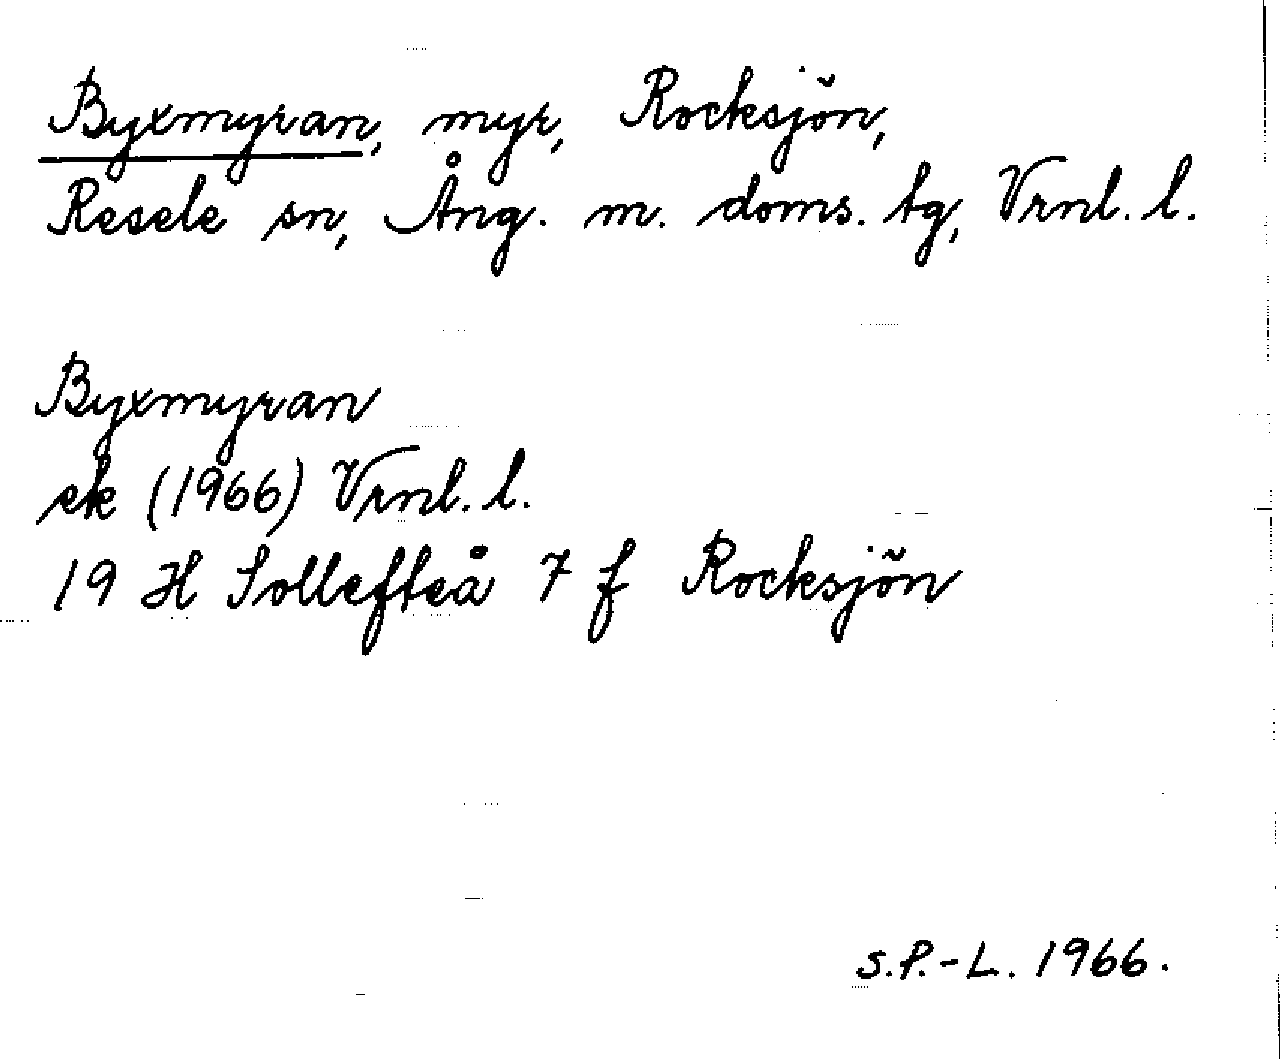 Byxmyran, myr, Rocksjön,
Resele sn, Ång. m. doms. tg, Vrnl. l.
Byxmyran
ek (1966) Vrnl. l.
19 H Sollefteå 7 f Rocksjön
S.P.-L. 1966.